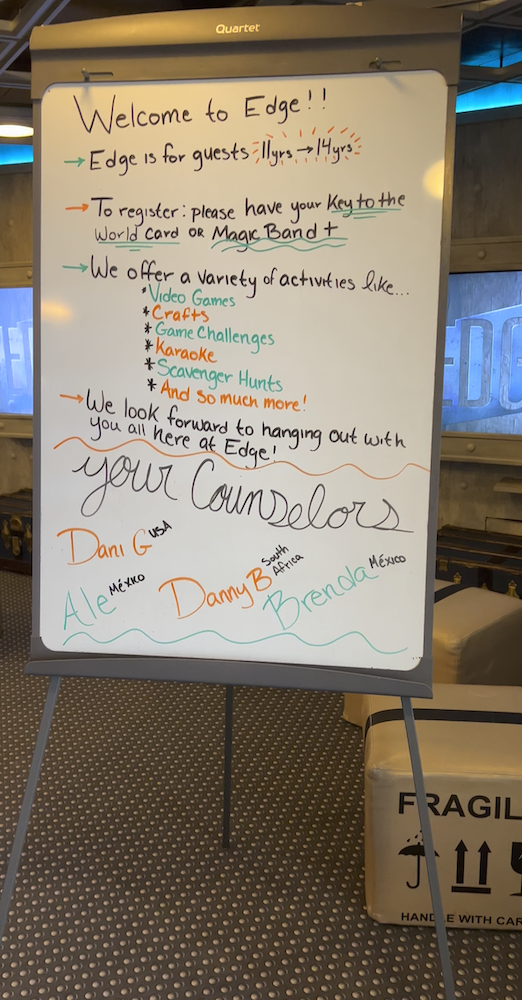 Quartet
Welcome to Edge!!
→ Edge is for guests 11yrs → 14yrs
→ To register: please have your Key to the
World Card or Magic Band +
→ We offer a variety of activities like...
* Video Games
* Crafts
* Game Challenges
* Karaoke
* Scavenger Hunts
* And so much more!
→ We look forward to hanging out with
you all here at Edge!
your Counselors
Dani G USA
Ale México
Danny B South Africa
Brenda México
EDGE
FRAGIL
HANDLE WITH CAR